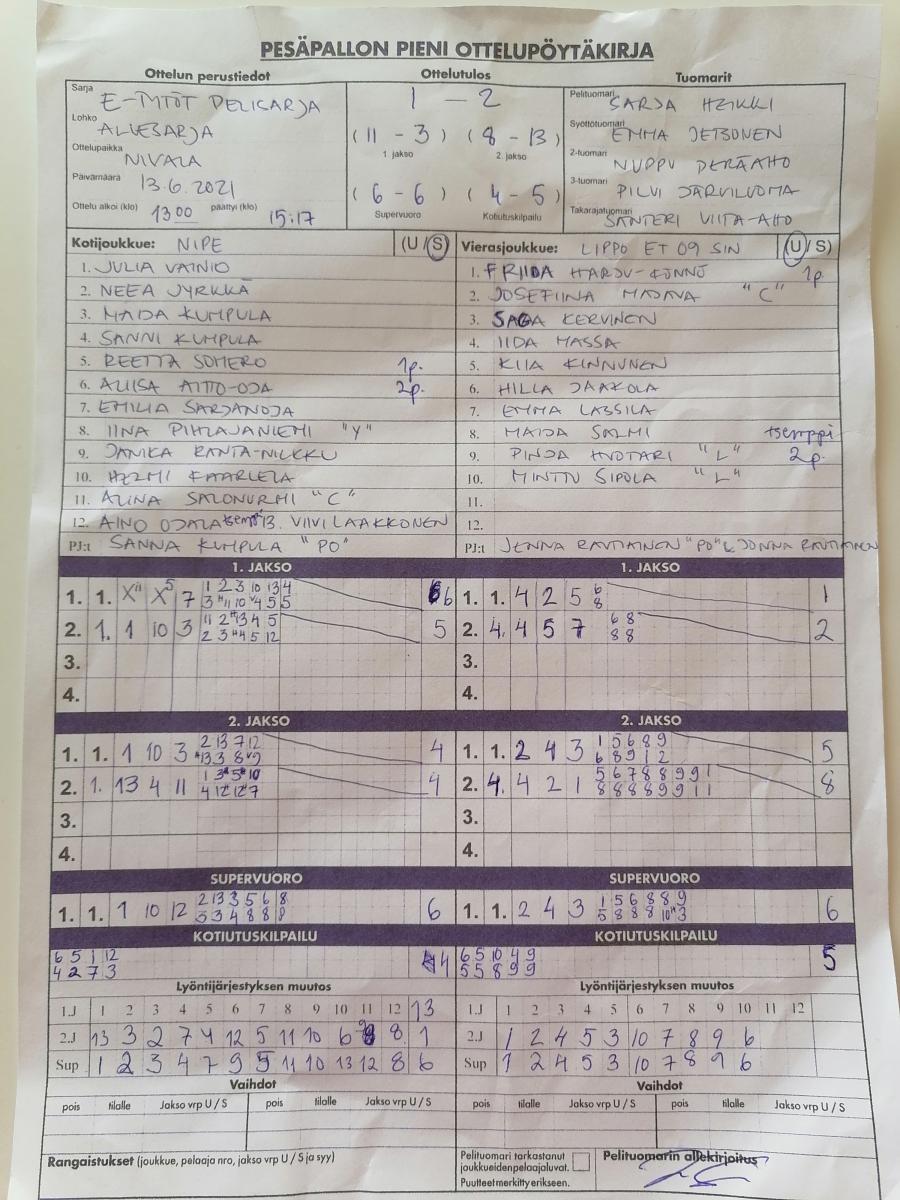 PESÄPALLON PIENI OTTELUPÖYTÄKIRJA
Ottelun perustiedot Ottelutulos Tuomarit
Sarja E-TYTÖT PELISARJA
Lohko ALUESARJA
Ottelupaikka NIVALA
Päivämäärä 13.6.2021
Ottelu alkoi (klo) 13 00 päättyi (klo) 15:17
1 - 2
(11 - 3) (8 - 13)
1. jakso 2. jakso
(6 - 6) (4 - 5)
Supervuoro Kotiutuskilpailu
Pelituomari SARJA HEIKKI
Syöttötuomari EMMA JETSONEN
2-tuomari NUPPU PERÄAHO
3-tuomari PILVI JÄRVILUOMA
Takarajatuomari SANTERI VIITA-AHO
Kotijoukkue: NIPE (U/S)
1. JULIA VAINIO
2. NEEA JYRKKÄ
3. MAIJA KUMPULA
4. SANNI KUMPULA
5. REETTA SOMERO 1p.
6. AUISA AITTO-OJA 2p.
7. EMILIA SARJANOJA
8. IINA PIHLAJANIEMI "Y"
9. JANIKA RANTA-NILKKU
10. HELMI KAARLELA
11. ALINA SALONURMI "C"
12. AINO OJALA tsemp 13. VIIVI LAAKKONEN
PJ:t SANNA KUMPULA "PO"
Vierasjoukkue: LIPPO ET 09 SIN (U/S)
1. FRIIDA HARJU-KÖNNÖ 1p.
2. JOSEFIINA MAJAVA "C"
3. SAGA KERVINEN
4. IIDA MASSA
5. KIIA KINNUNEN
6. HILLA JAAKOLA
7. EMMA LASSILA
8. MAIJA SALMI tsemppi
9. PINJA HUOTARI "L" 2p.
10. MINTTU SIPOLA "L"
11.
12.
PJ:t JENNA RAUTIAINEN "PO" & JONNA RAUTIAINEN
1. JAKSO 1. JAKSO
1. 1. X X 7 6
2. 1. 1 10 3 5
3.
4.
1. 1. 4 2 5 6 8 1
2. 4. 4 5 7 6 8 8 8 2
3.
4.
2. JAKSO 2. JAKSO
1. 1. 1 10 3 2 13 7 12 4
2. 1. 13 4 11 4
3.
4.
1. 1. 2 4 3 1 5 6 8 9 6 8 9 1 2 5
2. 4. 4 2 1 5 6 7 8 8 9 9 1 8 8 8 8 9 9 1 1 8
3.
4.
SUPERVUORO SUPERVUORO
1. 1. 1 10 12 2 13 3 5 6 8 3 3 4 8 8 8 6
1. 1. 2 4 3 1 5 6 8 8 9 6
KOTIUTUSKILPAILU KOTIUTUSKILPAILU
6 5 1 12 4
4 2 7 3
6 5 10 4 9 5
5 5 8 9 9
Lyöntijärjestyksen muutos Lyöntijärjestyksen muutos
1.J 1 2 3 4 5 6 7 8 9 10 11 12 13
2.J 13 3 2 7 4 12 5 11 10 6 9 8 1
Sup 1 2 3 4 7 9 5 11 10 13 12 8 6
1.J 1 2 3 4 5 6 7 8 9 10 11 12
2.J 1 2 4 5 3 10 7 8 9 6
Sup 1 2 4 5 3 10 7 8 9 6
Vaihdot Vaihdot
pois tilalle Jakso vrp U / S pois tilalle Jakso vrp U / S
pois tilalle Jakso vrp U / S pois tilalle Jakso vrp U / S
Rangaistukset (joukkue, pelaaja nro, jakso vrp U / S ja syy)
Pelituomari tarkastanut
joukkueiden pelaajaluvat.
Puutteet merkitty erikseen.
Pelituomarin allekirjoitus